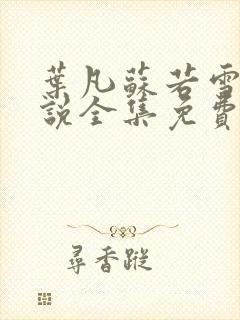 葉凡蘇若雪
說全集免費
尋香蹤